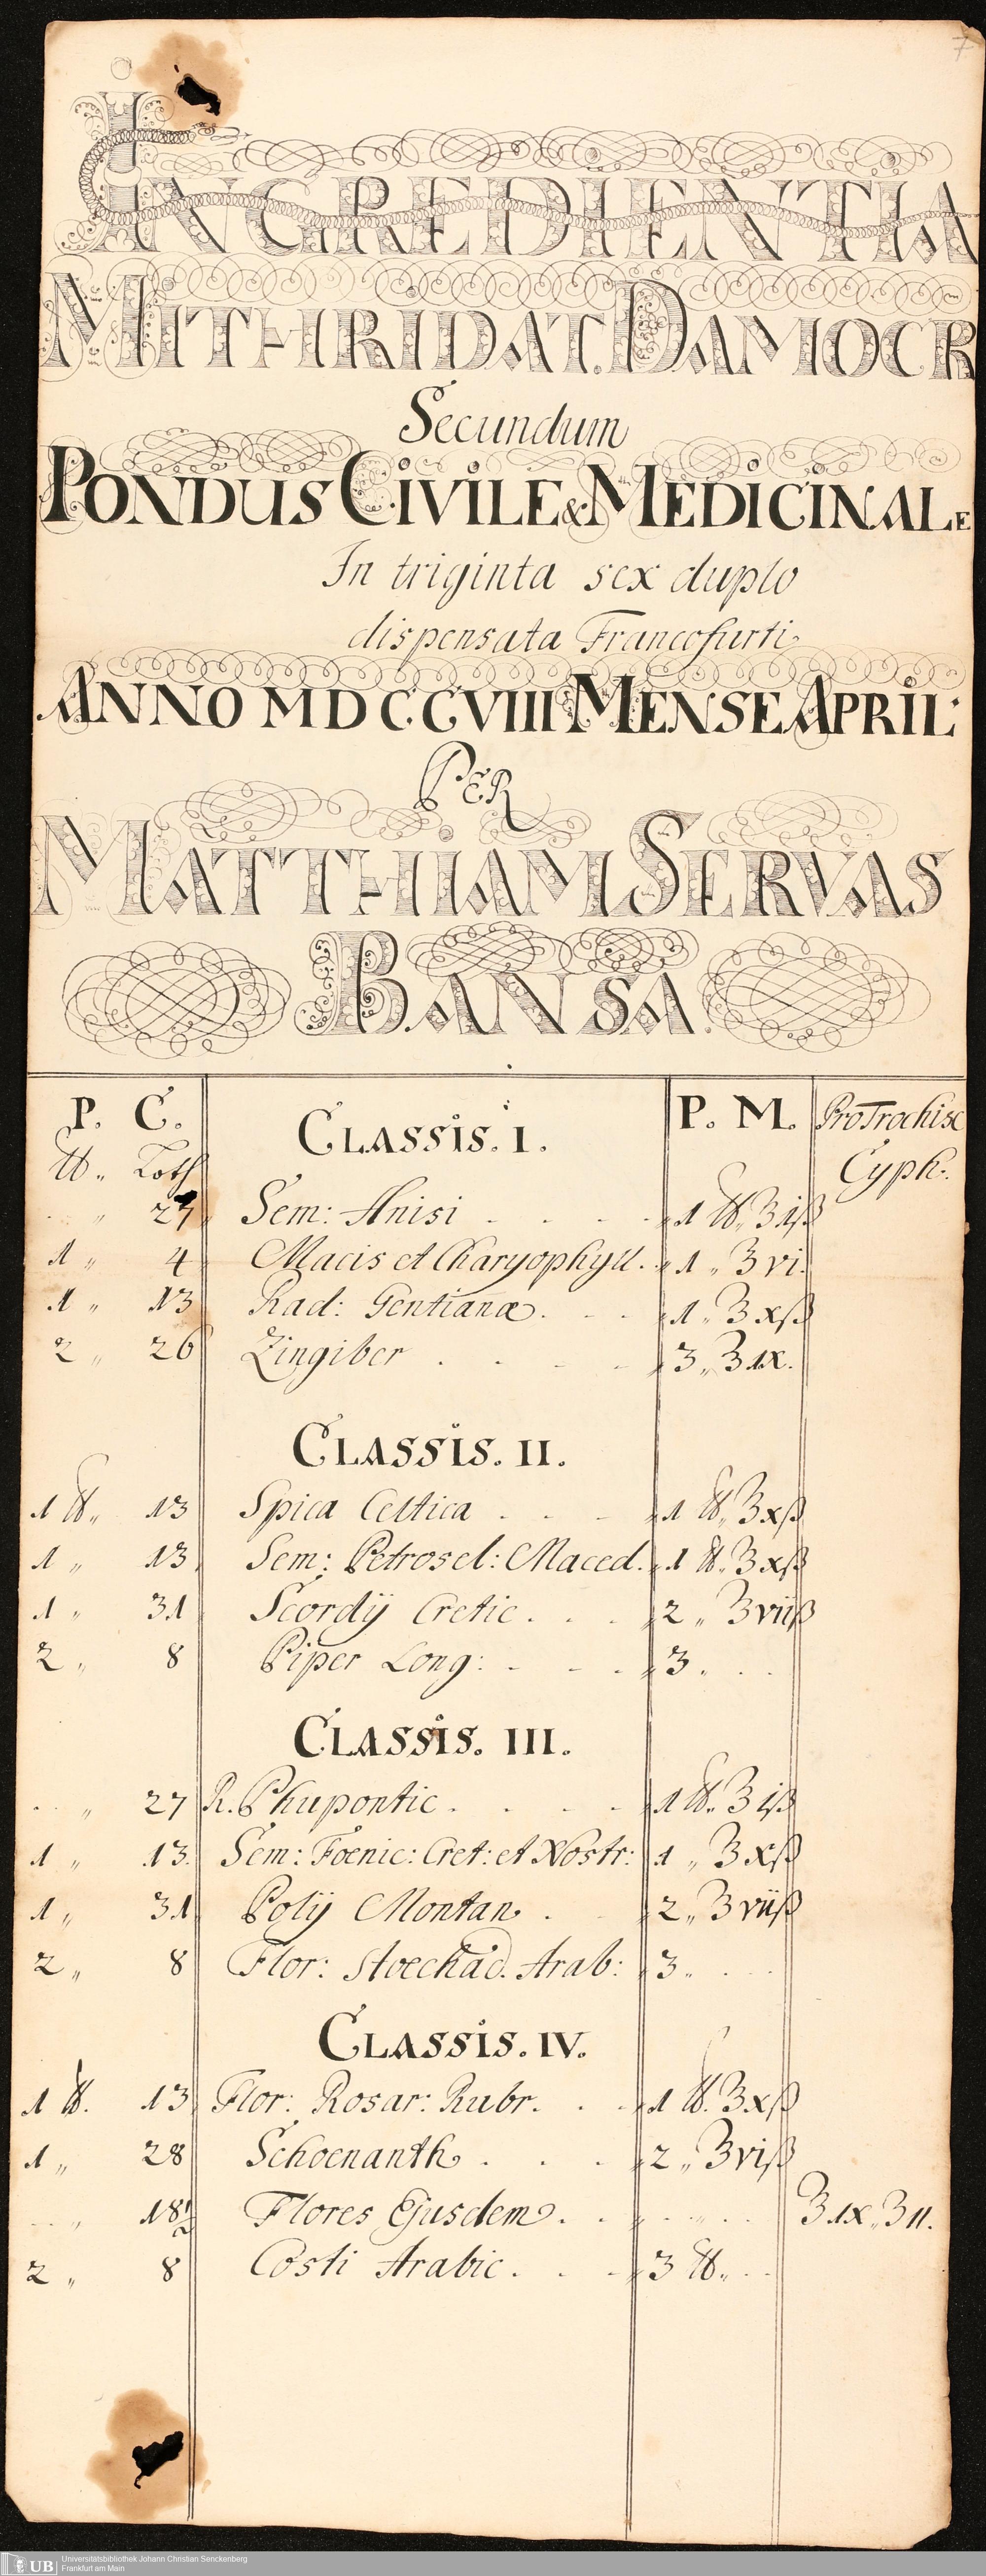 7
INGREDIENTIA
MITHRIDAT. DAMOCR
Secundum
PONDUS CIVILE & MEDICINALE
In triginta sex duplo
dispensata Francofurti
ANNO MDCCVIIII MENSE APRIL:
PER
MATTHIAM SERVAS
BANSA.
P. C. CLASSIS. I. P. M. Pro Trochisc
℔. Loth Cyph:
„ 27 Sem: Anisi . . . . 1 ℔. ℥ iß
1 „ 4 Macis et Charyophyll. . 1 „ ℥ vi.
1 „ 13 Rad: Gentianæ. . . 1 „ ℥ xß
2 „ 26 Zingiber . . . . 3 „ ℥ ix.
CLASSIS. II.
1 ℔. 13 Spica Celtica . . . 1 ℔. ℥ xß
1 „ 13 Sem: Petrosel: Maced. 1 ℔. ℥ xß
1 „ 31 Scordij Cretic . . . 2 „ ℥ viiß
2 „ 8 Piper Long: . . . 3 . . .
CLASSIS. III.
. . „ 27 R. Phupontic . . . . 1 ℔. ℥ iß
1 „ 13. Sem: Fœnic: Cret: et Nostr: 1 „ ℥ xß
1 „ 31 Polij Montan . . 2 „ ℥ viiß
2 „ 8 Flor: Stoechad. Arab: 3 „ . . .
CLASSIS. IV.
1 ℔. 13 Flor: Rosar: Rubr. . . 1 ℔. ℥ xß
1 „ 28 Schoenanth . . . 2 „ ℥ viß
. . „ 18½ Flores Ejusdem . . . . . . ℥ ix. ʒ ii.
2 „ 8 Costi Arabic . . . 3 ℔. . .
UB Universitätsbibliothek Johann Christian Senckenberg
Frankfurt am Main